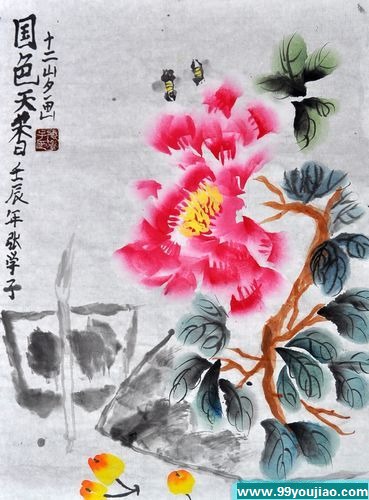 国色天香 壬辰年张学子
十二岁画
www.99youjiao.com